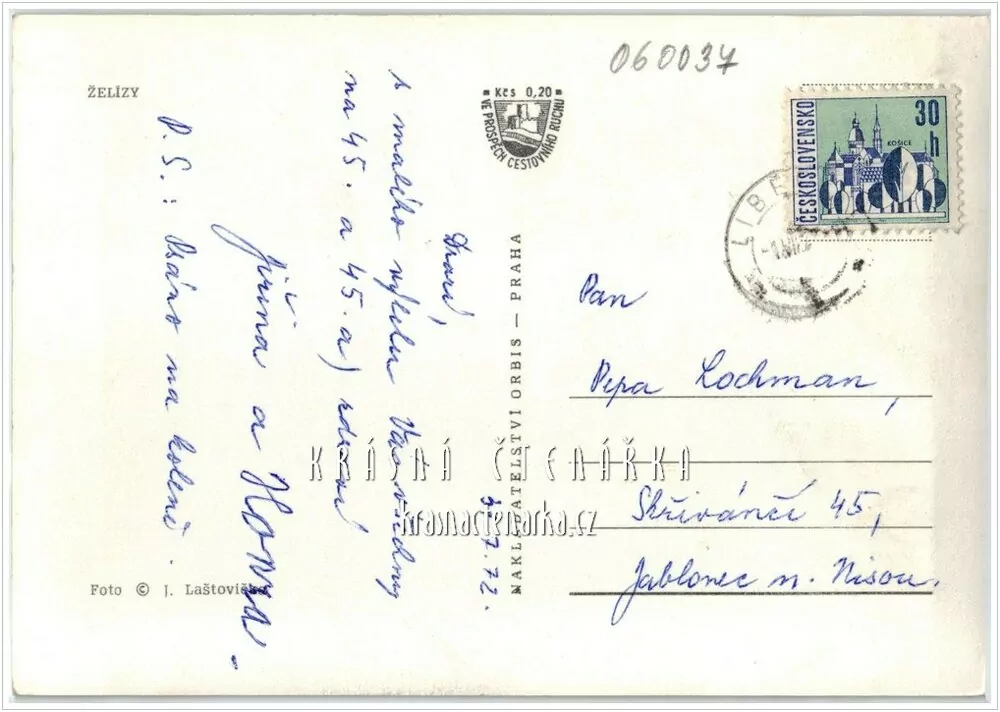 060037
ŽELÍZY
Kčs 0,20
VE PROSPĚCH CESTOVNÍHO RUCHU
ČESKOSLOVENSKO
30 h
KOŠICE
LIBE
Drazí,
s malého výletu Vás všechny
na 45. a 45.a) zdraví
Jiřina a Honza.
P.S.: Psáno na koleně.
7.72.
Foto © J. Laštovička
NAKLADATELSTVÍ ORBIS — PRAHA
Pan
Pepa Lochman,
Skřivánčí 45,
Jablonec n. Nisou.
KRÁSNÁ ČTENÁŘKA
krasnactenarka.cz